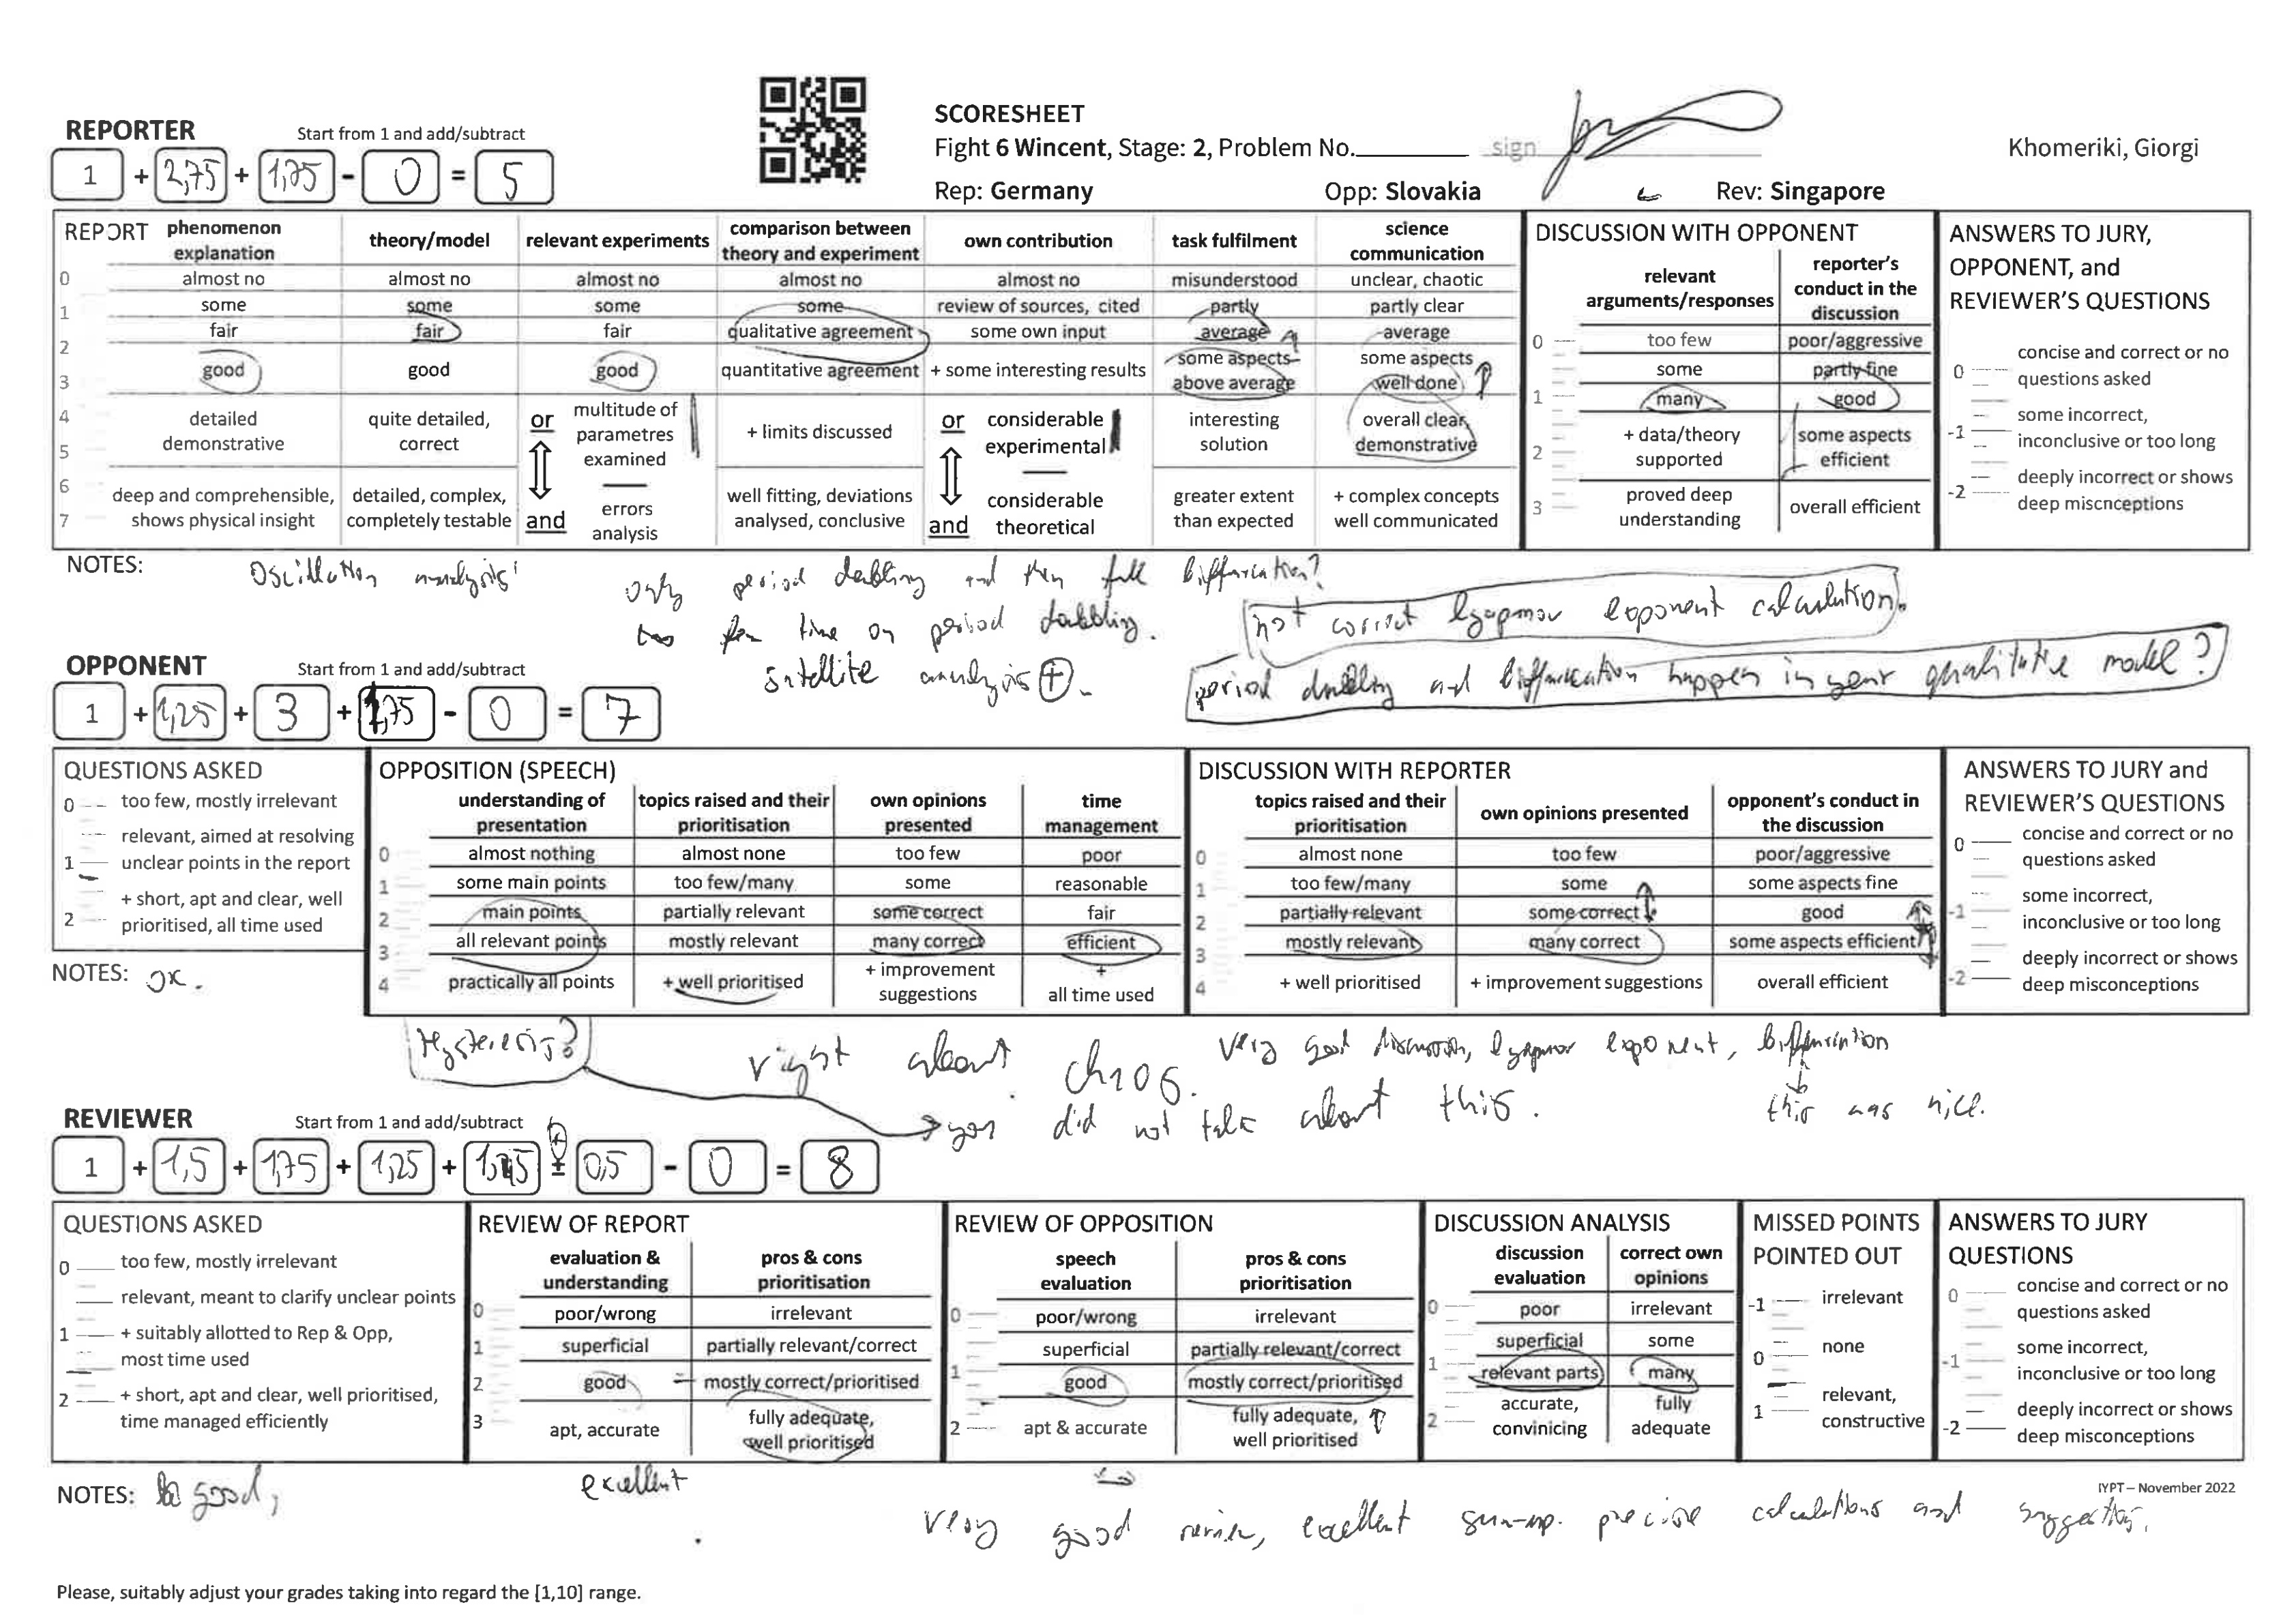 SCORESHEET
Fight 6 Wincent, Stage: 2, Problem No. sign:
Khomeriki, Giorgi
Rep: Germany Opp: Slovakia Rev: Singapore
REPORTER Start from 1 and add/subtract
1 + 2,75 + 1,25 - 0 = 5
REPORT
phenomenon explanation | theory/model | relevant experiments | comparison between theory and experiment | own contribution | task fulfilment | science communication
0 almost no | almost no | almost no | almost no | almost no | misunderstood | unclear, chaotic
1 some | some | some | some | review of sources, cited | partly | partly clear
fair | fair | fair | qualitative agreement | some own input | average | average
2
3 good | good | good | quantitative agreement | + some interesting results | some aspects above average | some aspects well done
4 5 detailed demonstrative | quite detailed, correct | or multitude of parametres examined | + limits discussed | or considerable experimental | interesting solution | overall clear, demonstrative
6 7 deep and comprehensible, shows physical insight | detailed, complex, completely testable | and errors analysis | well fitting, deviations analysed, conclusive | and considerable theoretical | greater extent than expected | + complex concepts well communicated
DISCUSSION WITH OPPONENT
relevant arguments/responses | reporter's conduct in the discussion
0 too few | poor/aggressive
some | partly fine
1 many | good
2 + data/theory supported | some aspects efficient
3 proved deep understanding | overall efficient
ANSWERS TO JURY, OPPONENT, and REVIEWER'S QUESTIONS
0 concise and correct or no questions asked
-1 some incorrect, inconclusive or too long
-2 deeply incorrect or shows deep miscnceptions
NOTES: Oscillation analysis!
only period dabling and then full biffurication?
time on period dabbling.
satellite analysis +.
not correct lyapnov exponent calculation.
period dabling and biffurication happen in your qualitative model?
OPPONENT Start from 1 and add/subtract
1 + 1,25 + 3 + 1,75 - 0 = 7
QUESTIONS ASKED
0 too few, mostly irrelevant
1 relevant, aimed at resolving unclear points in the report
2 + short, apt and clear, well prioritised, all time used
NOTES: ok.
OPPOSITION (SPEECH)
understanding of presentation | topics raised and their prioritisation | own opinions presented | time management
0 almost nothing | almost none | too few | poor
1 some main points | too few/many | some | reasonable
2 main points | partially relevant | some correct | fair
3 all relevant points | mostly relevant | many correct | efficient
4 practically all points | + well prioritised | + improvement suggestions | + all time used
DISCUSSION WITH REPORTER
topics raised and their prioritisation | own opinions presented | opponent's conduct in the discussion
0 almost none | too few | poor/aggressive
1 too few/many | some | some aspects fine
2 partially relevant | some correct | good
3 mostly relevant | many correct | some aspects efficient
4 + well prioritised | + improvement suggestions | overall efficient
ANSWERS TO JURY and REVIEWER'S QUESTIONS
0 concise and correct or no questions asked
-1 some incorrect, inconclusive or too long
-2 deeply incorrect or shows deep misconceptions
Hysteresis?
right about chaos.
you did not talk about this.
Very good discussion, lyapnov exponent, biffurication
this was nice.
REVIEWER Start from 1 and add/subtract
1 + 1,5 + 1,75 + 1,25 + ± 0,5 - 0 = 8
QUESTIONS ASKED
0 too few, mostly irrelevant
relevant, meant to clarify unclear points
1 + suitably allotted to Rep & Opp, most time used
2 + short, apt and clear, well prioritised, time managed efficiently
REVIEW OF REPORT
evaluation & understanding | pros & cons prioritisation
0 poor/wrong | irrelevant
1 superficial | partially relevant/correct
2 good | mostly correct/prioritised
3 apt, accurate | fully adequate, well prioritised
REVIEW OF OPPOSITION
speech evaluation | pros & cons prioritisation
0 poor/wrong | irrelevant
superficial | partially relevant/correct
1 good | mostly correct/prioritised
2 apt & accurate | fully adequate, well prioritised
DISCUSSION ANALYSIS
discussion evaluation | correct own opinions
0 poor | irrelevant
superficial | some
1 relevant parts | many
2 accurate, convinicing | fully adequate
MISSED POINTS POINTED OUT
-1 irrelevant
0 none
1 relevant, constructive
ANSWERS TO JURY QUESTIONS
0 concise and correct or no questions asked
-1 some incorrect, inconclusive or too long
-2 deeply incorrect or shows deep misconceptions
NOTES: good;
excellent
very good review, excellent sum-up. precise calculations and suggestions.
IYPT – November 2022
Please, suitably adjust your grades taking into regard the [1,10] range.